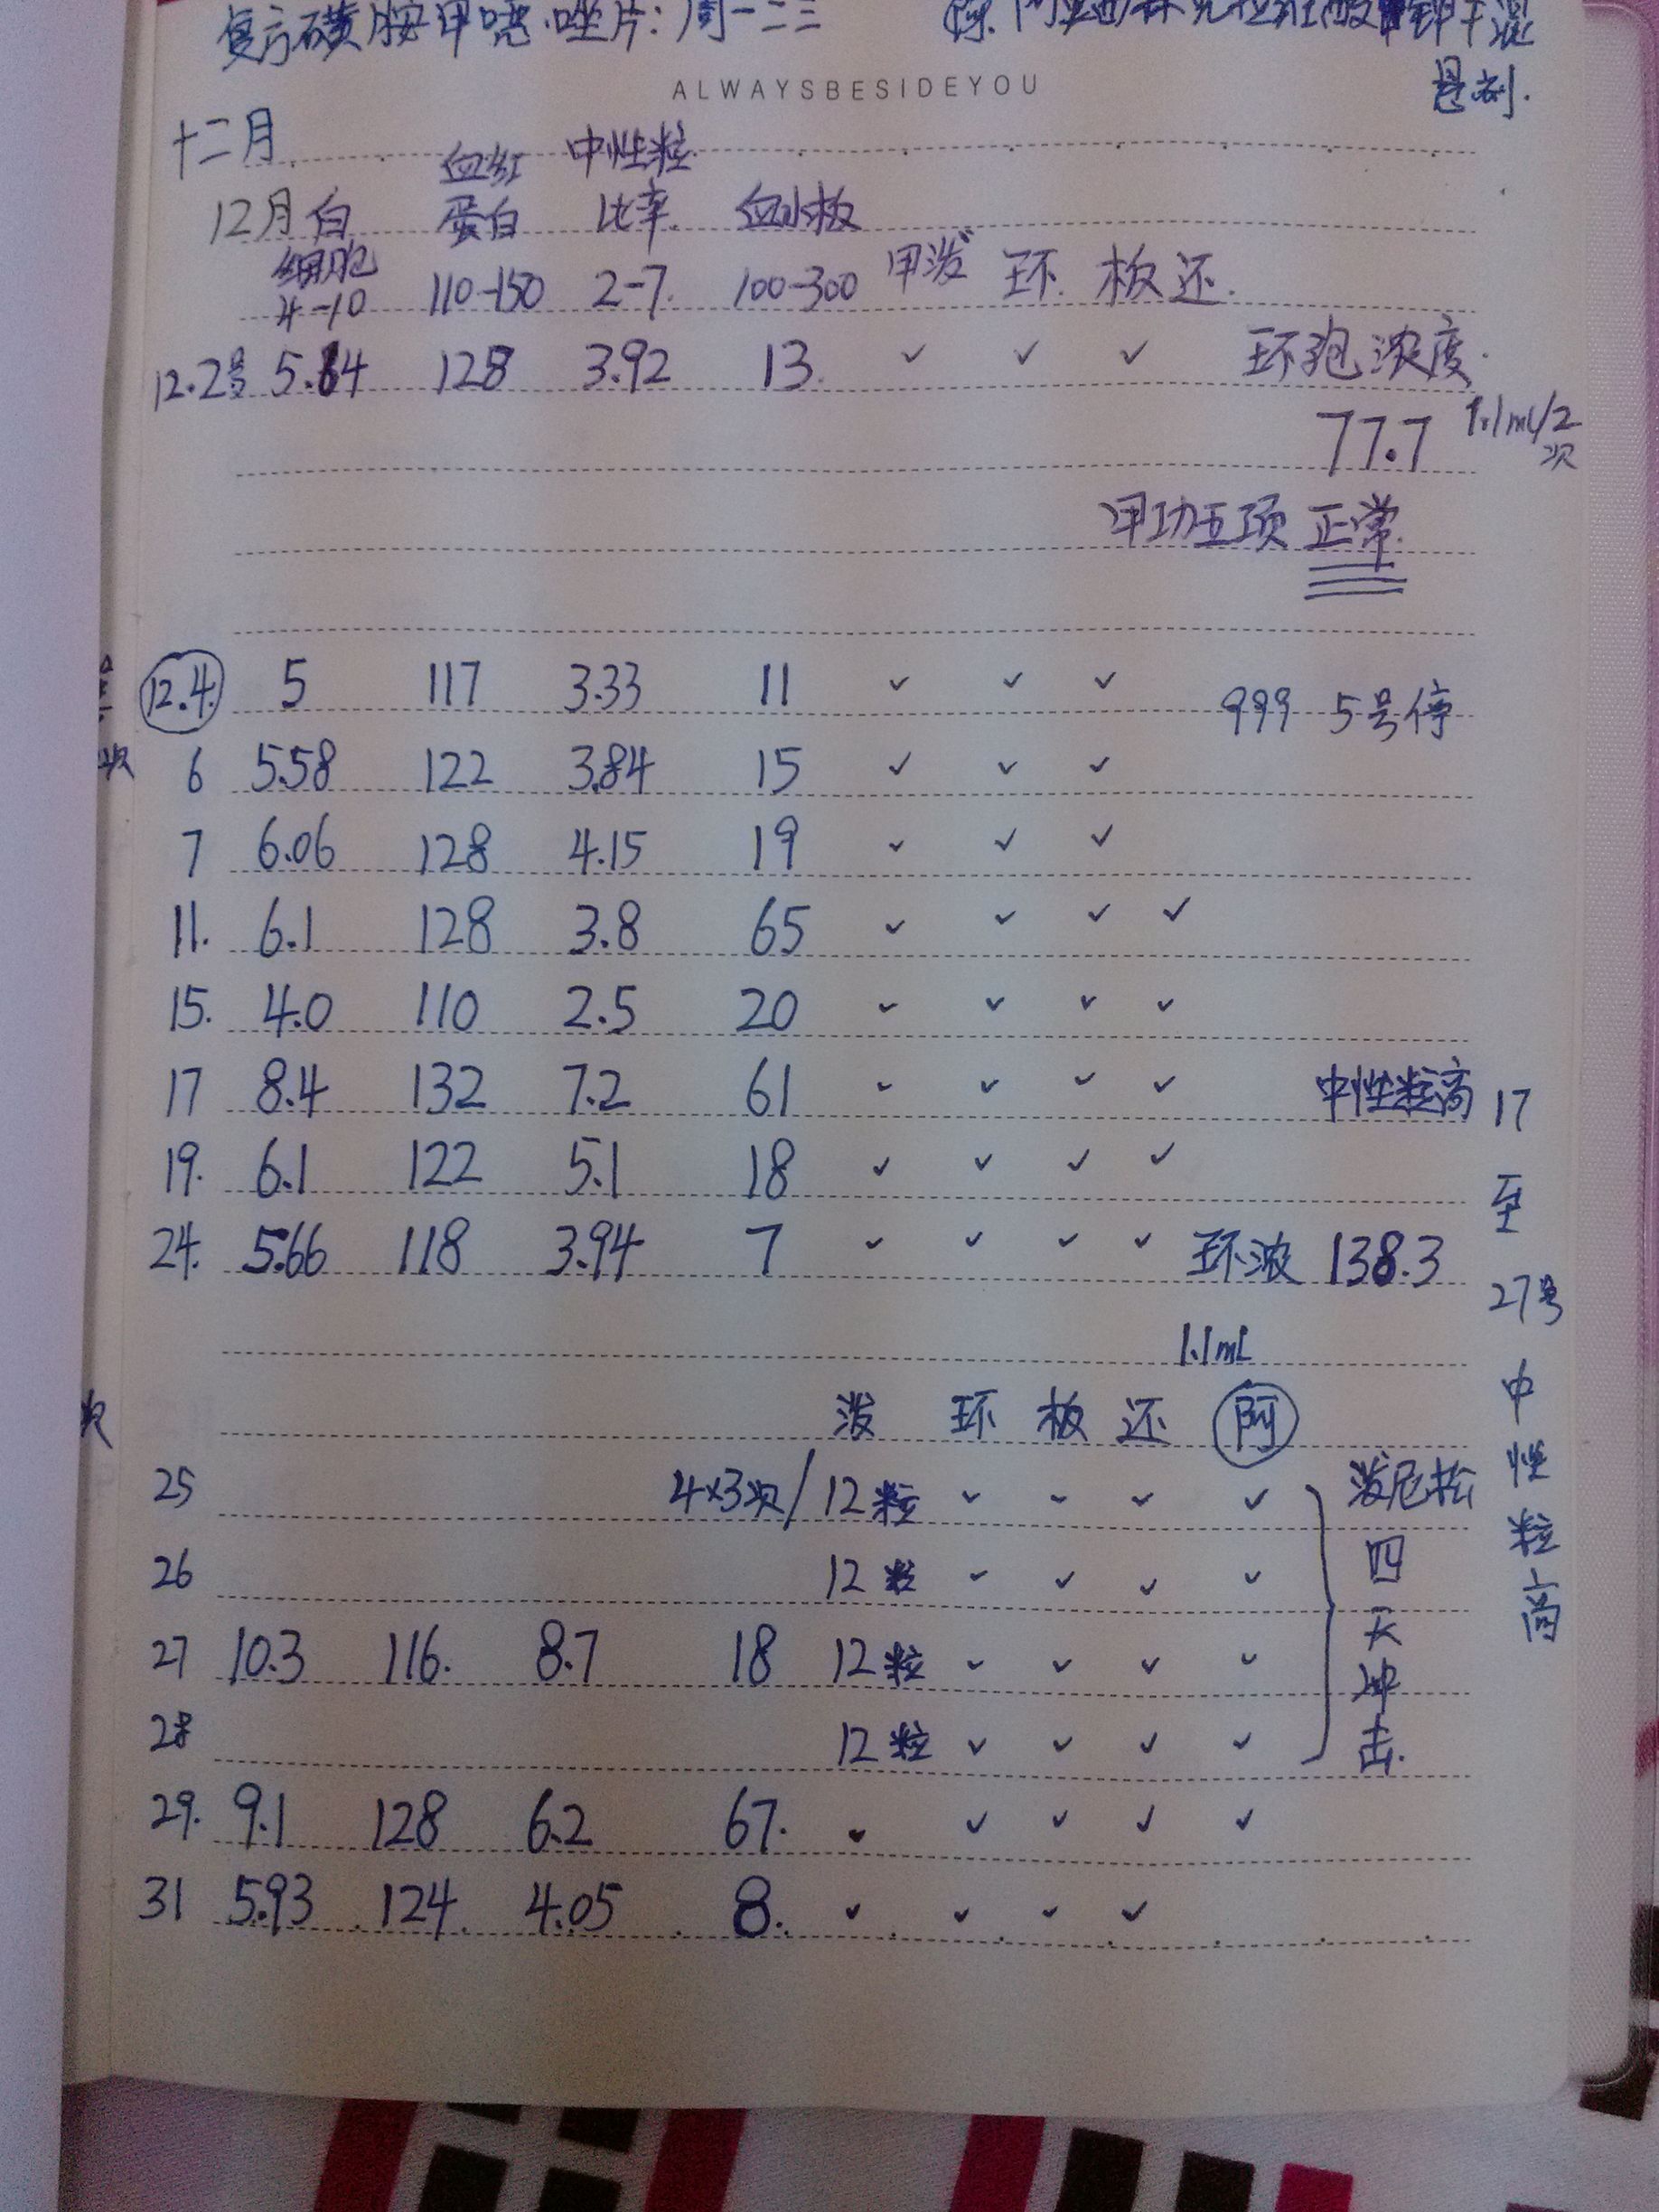 复方磺胺甲噁唑片:周一二三
悬剂.
ALWAYSBESIDEYOU
十二月
血红 中性粒
12月 白 蛋白 比率 血小板
细胞
4-10 110-150 2-7 100-300 甲泼 环 板 还
12.2号 5.84 128 3.92 13 ✓ ✓ ✓ 环孢浓度
77.7 1.1ml/2次
甲功五项 正常
12.4 5 117 3.33 11 ✓ ✓ ✓ 999 5号停
6 5.58 122 3.84 15 ✓ ✓ ✓
7 6.06 128 4.15 19 ✓ ✓ ✓
11. 6.1 128 3.8 65 ✓ ✓ ✓ ✓
15. 4.0 110 2.5 20 ✓ ✓ ✓ ✓
17 8.4 132 7.2 61 ✓ ✓ ✓ ✓ 中性粒高
19. 6.1 122 5.1 18 ✓ ✓ ✓ ✓
24. 5.66 118 3.94 7 ✓ ✓ ✓ ✓ 环浓 138.3
1.1mL
泼 环 板 还 阿
25 4×3次/12粒 ✓ ✓ ✓ ✓
26 12粒 ✓ ✓ ✓ ✓
27 10.3 116. 8.7 18 12粒 ✓ ✓ ✓ ✓
28 12粒 ✓ ✓ ✓ ✓
泼尼松四天冲击.
29. 9.1 128 6.2 67. ✓ ✓ ✓ ✓ ✓
31 5.93 124. 4.05 8. ✓ ✓ ✓ ✓
17至27号中性粒高